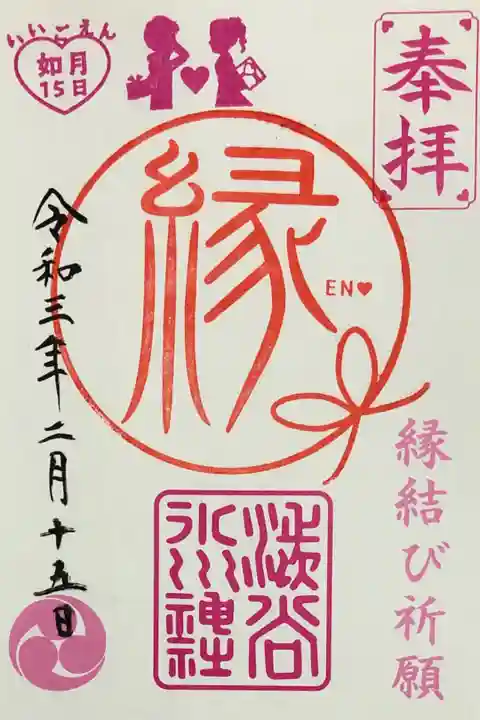 奉拝
いいごえん
如月
15日
縁
EN♥
令和三年二月十五日
縁結び祈願
渋谷
氷川神社